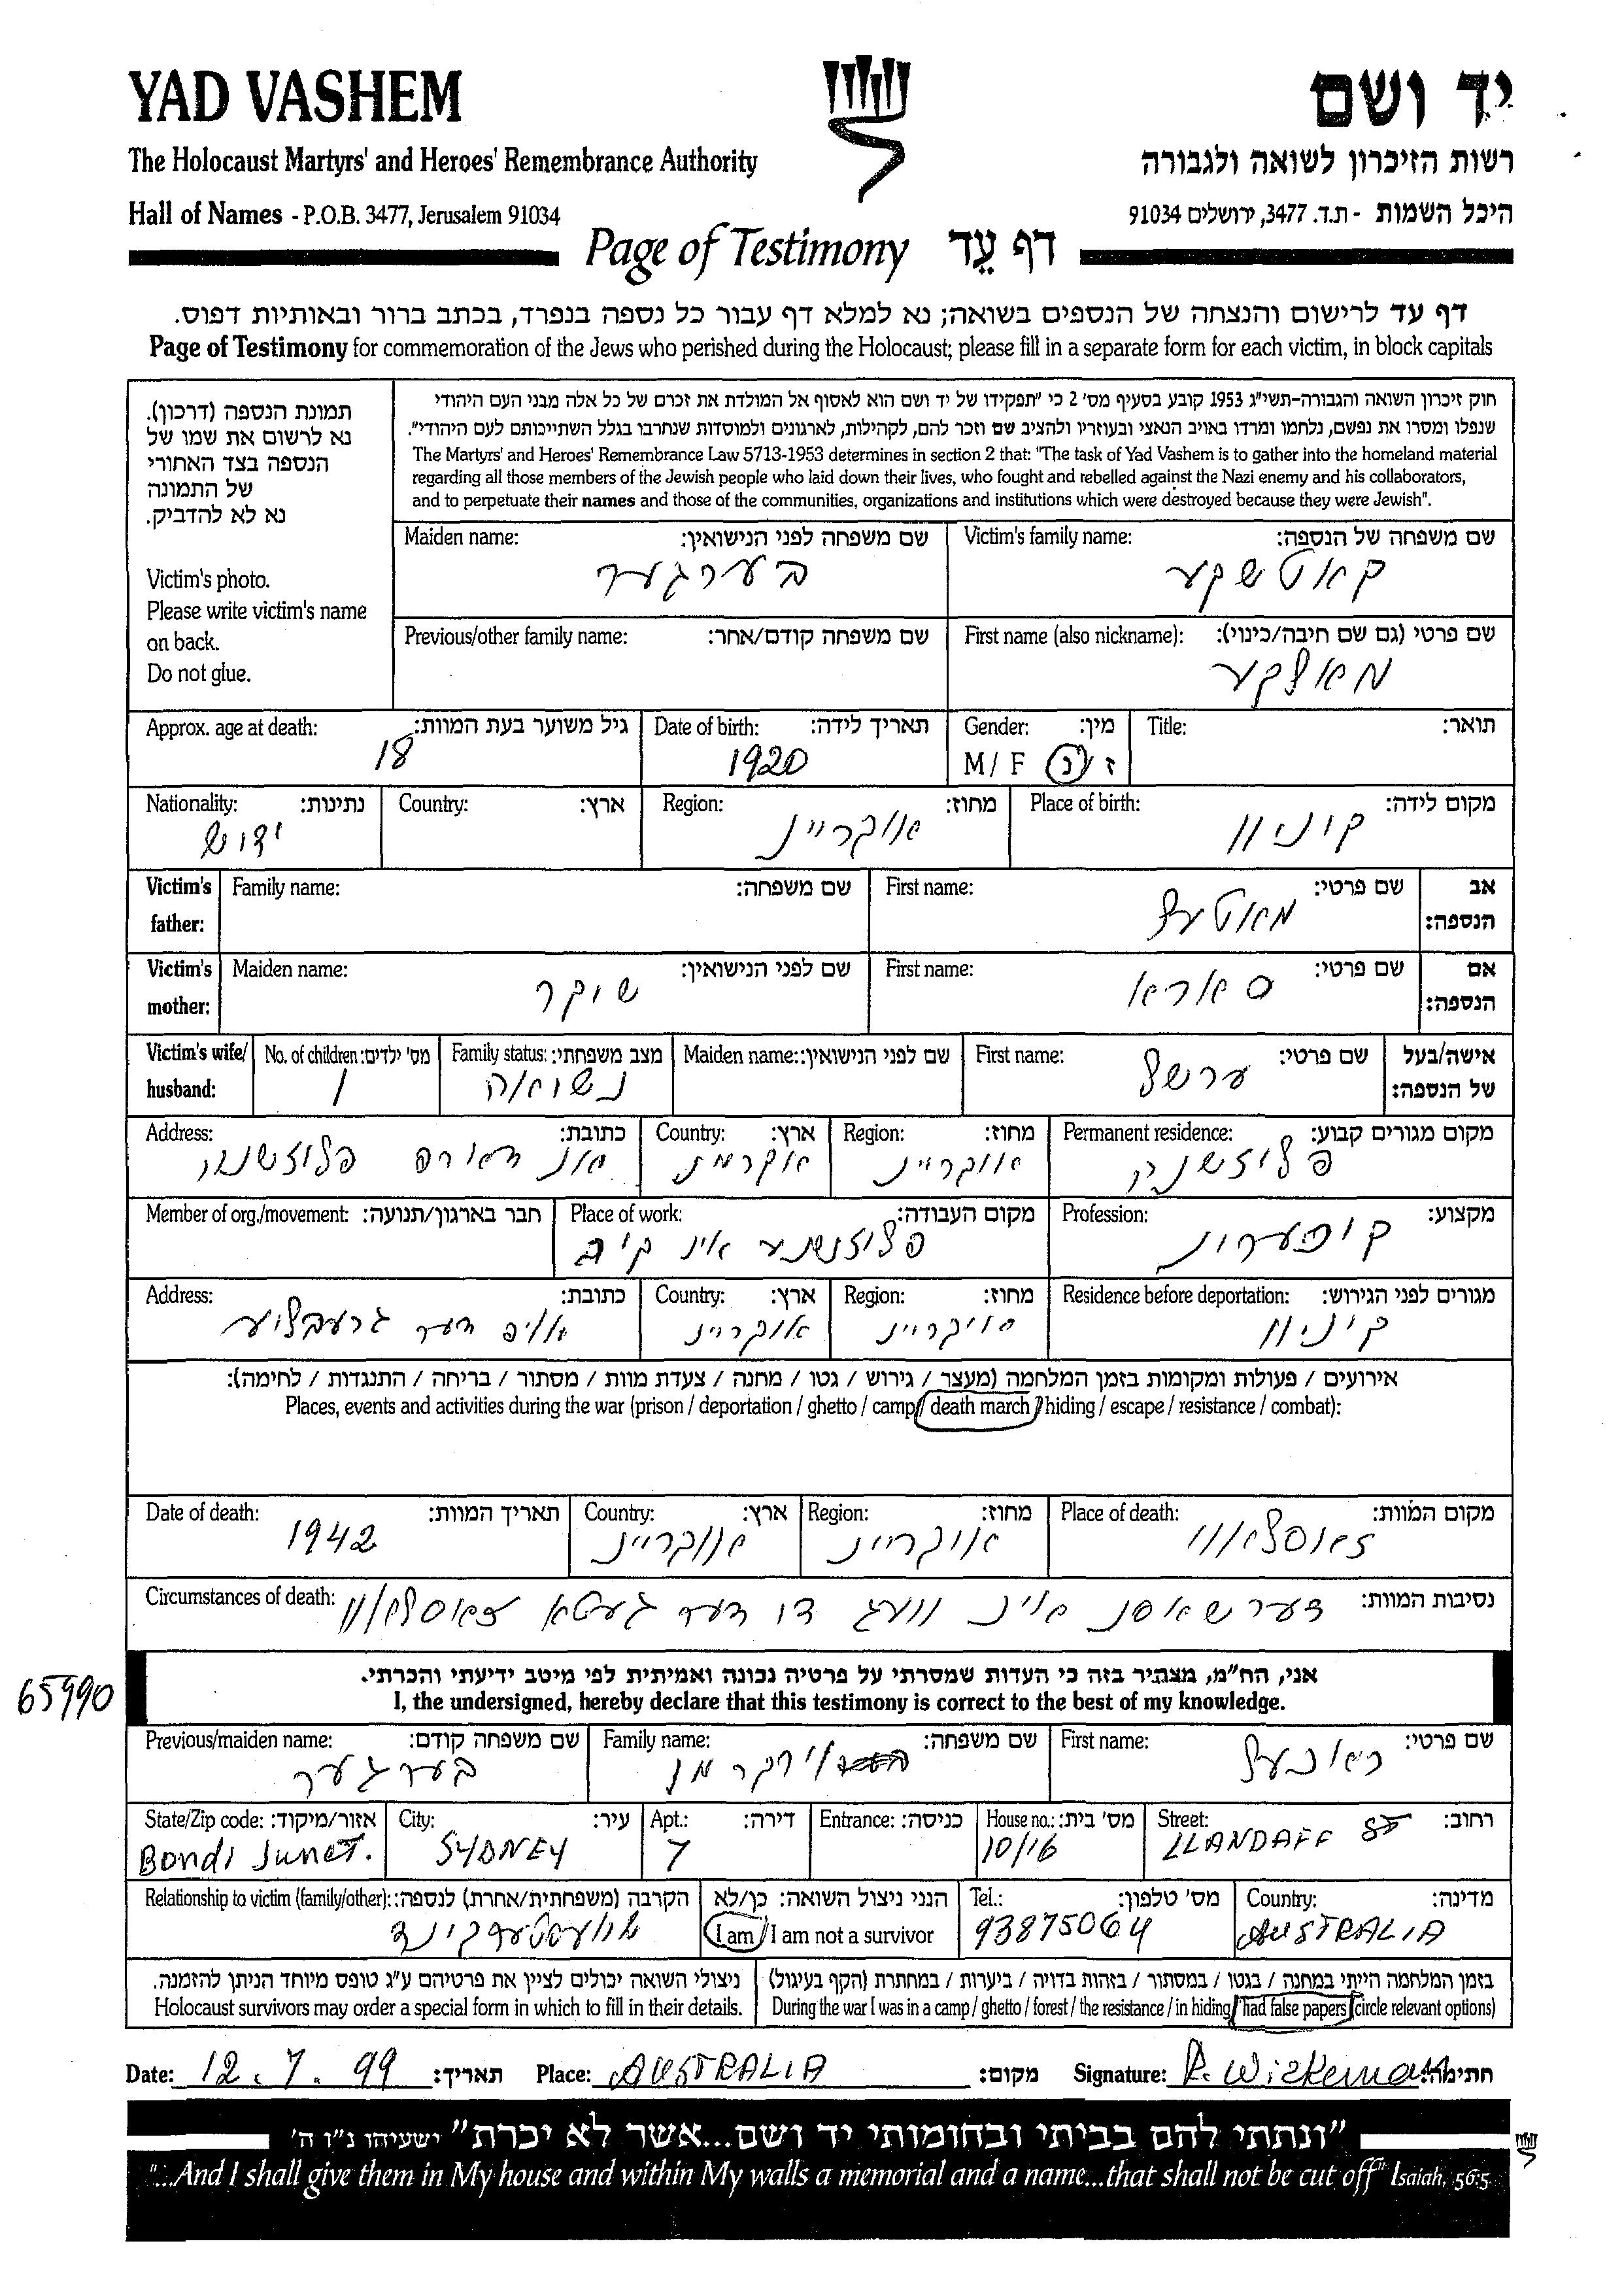 YAD VASHEM
יד ושם
The Holocaust Martyrs' and Heroes' Remembrance Authority
רשות הזיכרון לשואה ולגבורה
Hall of Names - P.O.B. 3477, Jerusalem 91034
היכל השמות - ת.ד. 3477, ירושלים 91034
Page of Testimony דף עֵד
דף עד לרישום והנצחה של הנספים בשואה; נא למלא דף עבור כל נספה בנפרד, בכתב ברור ובאותיות דפוס.
Page of Testimony for commemoration of the Jews who perished during the Holocaust; please fill in a separate form for each victim, in block capitals
תמונת הנספה (דרכון).
נא לרשום את שמו של
הנספה בצד האחורי
של התמונה
נא לא להדביק.
Victim's photo.
Please write victim's name
on back.
Do not glue.
חוק זיכרון השואה והגבורה-תשי"ג 1953 קובע בסעיף מס' 2 כי "תפקידו של יד ושם הוא לאסוף אל המולדת את זכרם של כל אלה מבני העם היהודי
שנפלו ומסרו את נפשם, נלחמו ומרדו באויב הנאצי ובעוזריו ולהציב שם וזכר להם, לקהילות, לארגונים ולמוסדות שנחרבו בגלל השתייכותם לעם היהודי".
The Martyrs' and Heroes' Remembrance Law 5713-1953 determines in section 2 that: "The task of Yad Vashem is to gather into the homeland material
regarding all those members of the Jewish people who laid down their lives, who fought and rebelled against the Nazi enemy and his collaborators,
and to perpetuate their names and those of the communities, organizations and institutions which were destroyed because they were Jewish".
Victim's family name: שם משפחה של הנספה:
קאטשקע
Maiden name: שם משפחה לפני הנישואין:
בערגער
First name (also nickname): שם פרטי (גם שם חיבה/כינוי):
מאלקע
Previous/other family name: שם משפחה קודם/אחר:
Title: תואר:
Gender: מין:
M / F ז / נ
Date of birth: תאריך לידה:
1920
Approx. age at death: גיל משוער בעת המוות:
18
Place of birth: מקום לידה:
קוניוו
Region: מחוז:
אוקריינ
Country: ארץ:
Nationality: נתינות:
ידיש
Victim's father: אב הנספה:
First name: שם פרטי:
מאטעל
Family name: שם משפחה:
Victim's mother: אם הנספה:
First name: שם פרטי:
סארא
Maiden name: שם לפני הנישואין:
שוקר
Victim's wife/ husband: אישה/בעל של הנספה:
First name: שם פרטי:
ערשל
Maiden name: שם לפני הנישואין:
Family status: מצב משפחתי:
נשואה
No. of children: מס' ילדים:
1
Permanent residence: מקום מגורים קבוע:
Region: מחוז:
אוקריינ
Country: ארץ:
אוקריינ
Address: כתובת:
Profession: מקצוע:
Place of work: מקום העבודה:
Member of org./movement: חבר בארגון/תנועה:
Residence before deportation: מגורים לפני הגירוש:
קוניוו
Region: מחוז:
אוקריינ
Country: ארץ:
אוקריינ
Address: כתובת:
אויפ דער גרעבלע
אירועים / פעולות ומקומות בזמן המלחמה (מעצר / גירוש / גטו / מחנה / צעדת מוות / מסתור / בריחה / התנגדות / לחימה):
Places, events and activities during the war (prison / deportation / ghetto / camp / death march / hiding / escape / resistance / combat):
Place of death: מקום המוות:
זאסלאוו
Region: מחוז:
אוקריינ
Country: ארץ:
אוקריינ
Date of death: תאריך המוות:
1942
Circumstances of death: נסיבות המוות:
דערשאסן אינ וועג צו דער געטא זאסלאוו
65990
אני, הח"מ, מצהיר בזה כי העדות שמסרתי על פרטיה נכונה ואמיתית לפי מיטב ידיעתי והכרתי.
I, the undersigned, hereby declare that this testimony is correct to the best of my knowledge.
First name: שם פרטי:
ראכעל
Family name: שם משפחה:
Previous/maiden name: שם משפחה קודם:
בערגער
Street: רחוב:
LLANDAFF ST
House no.: מס' בית:
10/16
Entrance: כניסה:
Apt.: דירה:
7
City: עיר:
SYDNEY
State/Zip code: אזור/מיקוד:
Bondi Junct.
Country: מדינה:
AUSTRALIA
Tel.: מס' טלפון:
93875064
הנני ניצול השואה: כן/לא
I am / I am not a survivor
Relationship to victim (family/other): הקרבה (משפחתית/אחרת) לנספה:
שוועסטערקינד
בזמן המלחמה הייתי במחנה / בגטו / במסתור / בזהות בדויה / ביערות / במחתרת (הקף בעיגול)
During the war I was in a camp / ghetto / forest / the resistance / in hiding / had false papers (circle relevant options)
ניצולי השואה יכולים לציין את פרטיהם ע"ג טופס מיוחד הניתן להזמנה.
Holocaust survivors may order a special form in which to fill in their details.
Date: 12.7.99 תאריך: Place: AUSTRALIA מקום: Signature: R. Wiekeman חתימה:
"ונתתי להם בביתי ובחומותי יד ושם...אשר לא יכרת" ישעיהו נ"ו ה'
"...And I shall give them in My house and within My walls a memorial and a name...that shall not be cut off" Isaiah, 56:5